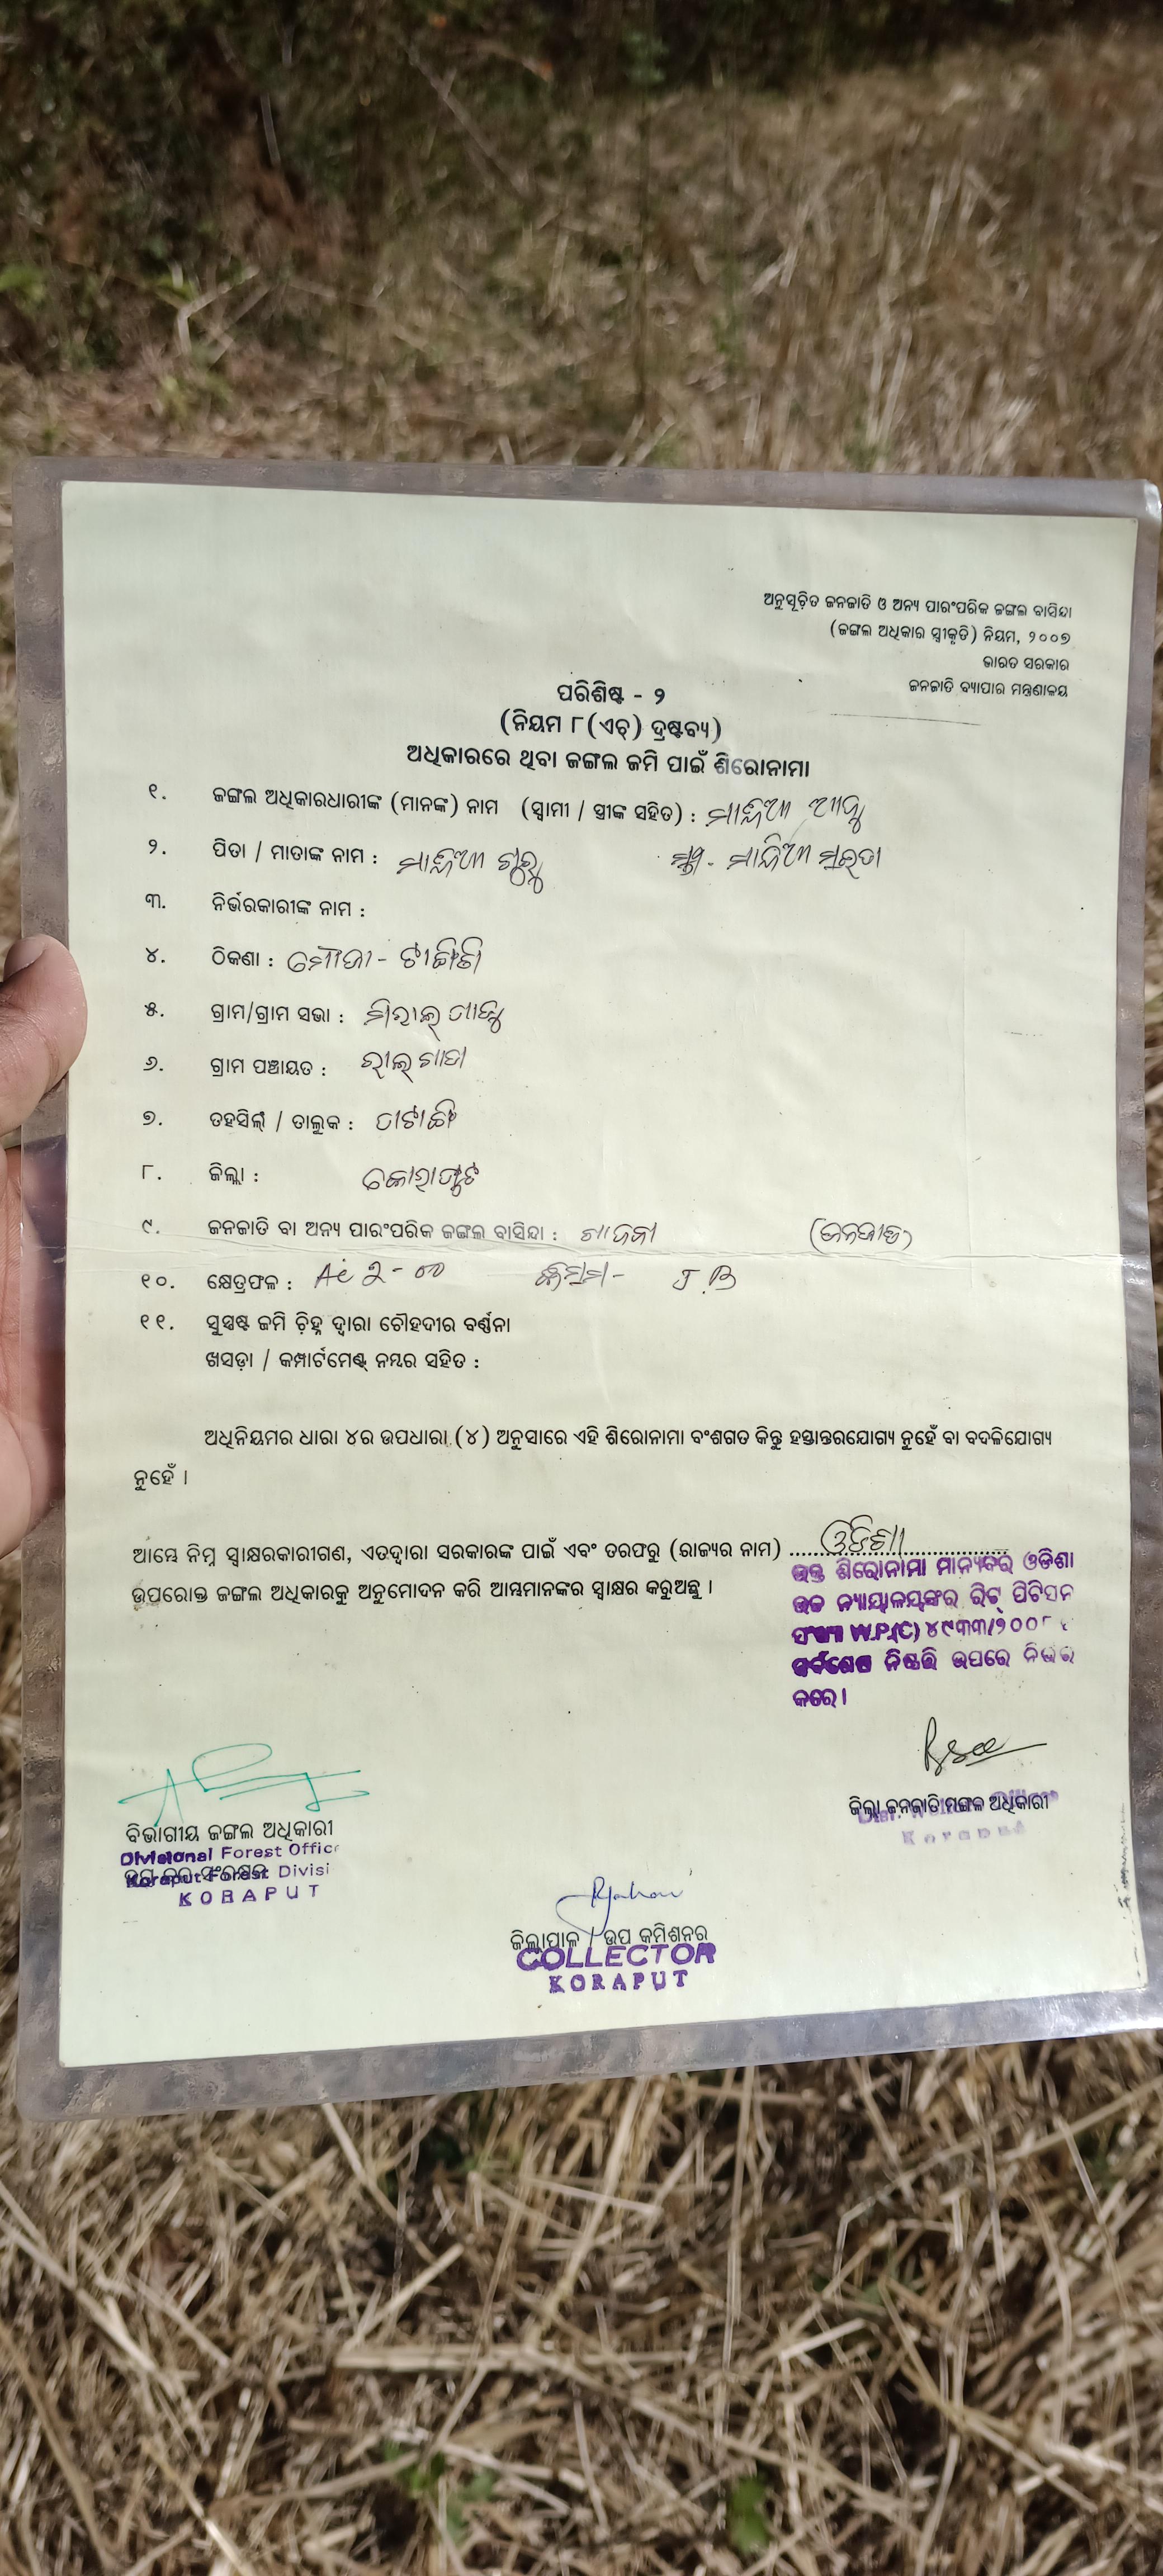 ଅନୁସୂଚିତ ଜନଜାତି ଓ ଅନ୍ୟ ପାରଂପରିକ ଜଙ୍ଗଲ ବାସିନ୍ଦା
(ଜଙ୍ଗଲ ଅଧିକାର ସ୍ୱୀକୃତି) ନିୟମ, ୨୦୦୭
ଭାରତ ସରକାର
ଜନଜାତି ବ୍ୟାପାର ମନ୍ତ୍ରଣାଳୟ
ପରିଶିଷ୍ଟ - ୨
(ନିୟମ ୮(ଏଚ୍) ଦ୍ରଷ୍ଟବ୍ୟ)
ଅଧିକାରରେ ଥିବା ଜଙ୍ଗଲ ଜମି ପାଇଁ ଶିରୋନାମା
୧. ଜଙ୍ଗଲ ଅଧିକାରଧାରୀଙ୍କ (ମାନଙ୍କ) ନାମ (ସ୍ୱାମୀ / ସ୍ତ୍ରୀଙ୍କ ସହିତ) :
୨. ପିତା / ମାତାଙ୍କ ନାମ :
୩. ନିର୍ଭରକାରୀଙ୍କ ନାମ :
୪. ଠିକଣା : ମୌଜା -
୫. ଗ୍ରାମ/ଗ୍ରାମ ସଭା :
୬. ଗ୍ରାମ ପଞ୍ଚାୟତ :
୭. ତହସିଲ୍ / ତାଲୁକ :
୮. ଜିଲ୍ଲା : କୋରାପୁଟ
୯. ଜନଜାତି ବା ଅନ୍ୟ ପାରଂପରିକ ଜଙ୍ଗଲ ବାସିନ୍ଦା : (ଜନଜାତି)
୧୦. କ୍ଷେତ୍ରଫଳ : Ac 2-00 କିସମ - J.B
୧୧. ସୁସ୍ପଷ୍ଟ ଜମି ଚିହ୍ନ ଦ୍ୱାରା ଚୌହଦୀର ବର୍ଣ୍ଣନା
ଖସଡ଼ା / କମ୍ପାର୍ଟମେଣ୍ଟ ନମ୍ବର ସହିତ :
ଅଧିନିୟମର ଧାରା ୪ର ଉପଧାରା (୪) ଅନୁସାରେ ଏହି ଶିରୋନାମା ବଂଶଗତ କିନ୍ତୁ ହସ୍ତାନ୍ତରଯୋଗ୍ୟ ନୁହେଁ ବା ବଦଳିଯୋଗ୍ୟ
ନୁହେଁ ।
ଆମ୍ଭେ ନିମ୍ନ ସ୍ୱାକ୍ଷରକାରୀଗଣ, ଏତଦ୍ୱାରା ସରକାରଙ୍କ ପାଇଁ ଏବଂ ତରଫରୁ (ରାଜ୍ୟର ନାମ) ଓଡିଶା
ଉପରୋକ୍ତ ଜଙ୍ଗଲ ଅଧିକାରକୁ ଅନୁମୋଦନ କରି ଆମ୍ଭମାନଙ୍କର ସ୍ୱାକ୍ଷର କରୁଅଛୁ ।
ଉକ୍ତ ଶିରୋନାମା ମାନ୍ୟବର ଓଡିଶା
ଉଚ୍ଚ ନ୍ୟାୟାଳୟଙ୍କର ରିଟ୍ ପିଟିସନ
ସଂଖ୍ୟା W.P.(C) ୪୯୩୩/୨୦୦୮
ସର୍ବଶେଷ ନିଷ୍ପତ୍ତି ଉପରେ ନିର୍ଭର
କରେ ।
ଜିଲ୍ଲା ଜନଜାତି ମଙ୍ଗଳ ଅଧିକାରୀ
Koraput
ବିଭାଗୀୟ ଜଙ୍ଗଲ ଅଧିକାରୀ
Divisional Forest Office
Koraput Forest Divisi
KORAPUT
ଜିଲ୍ଲାପାଳ / ଉପ କମିଶନର
COLLECTOR
KORAPUT